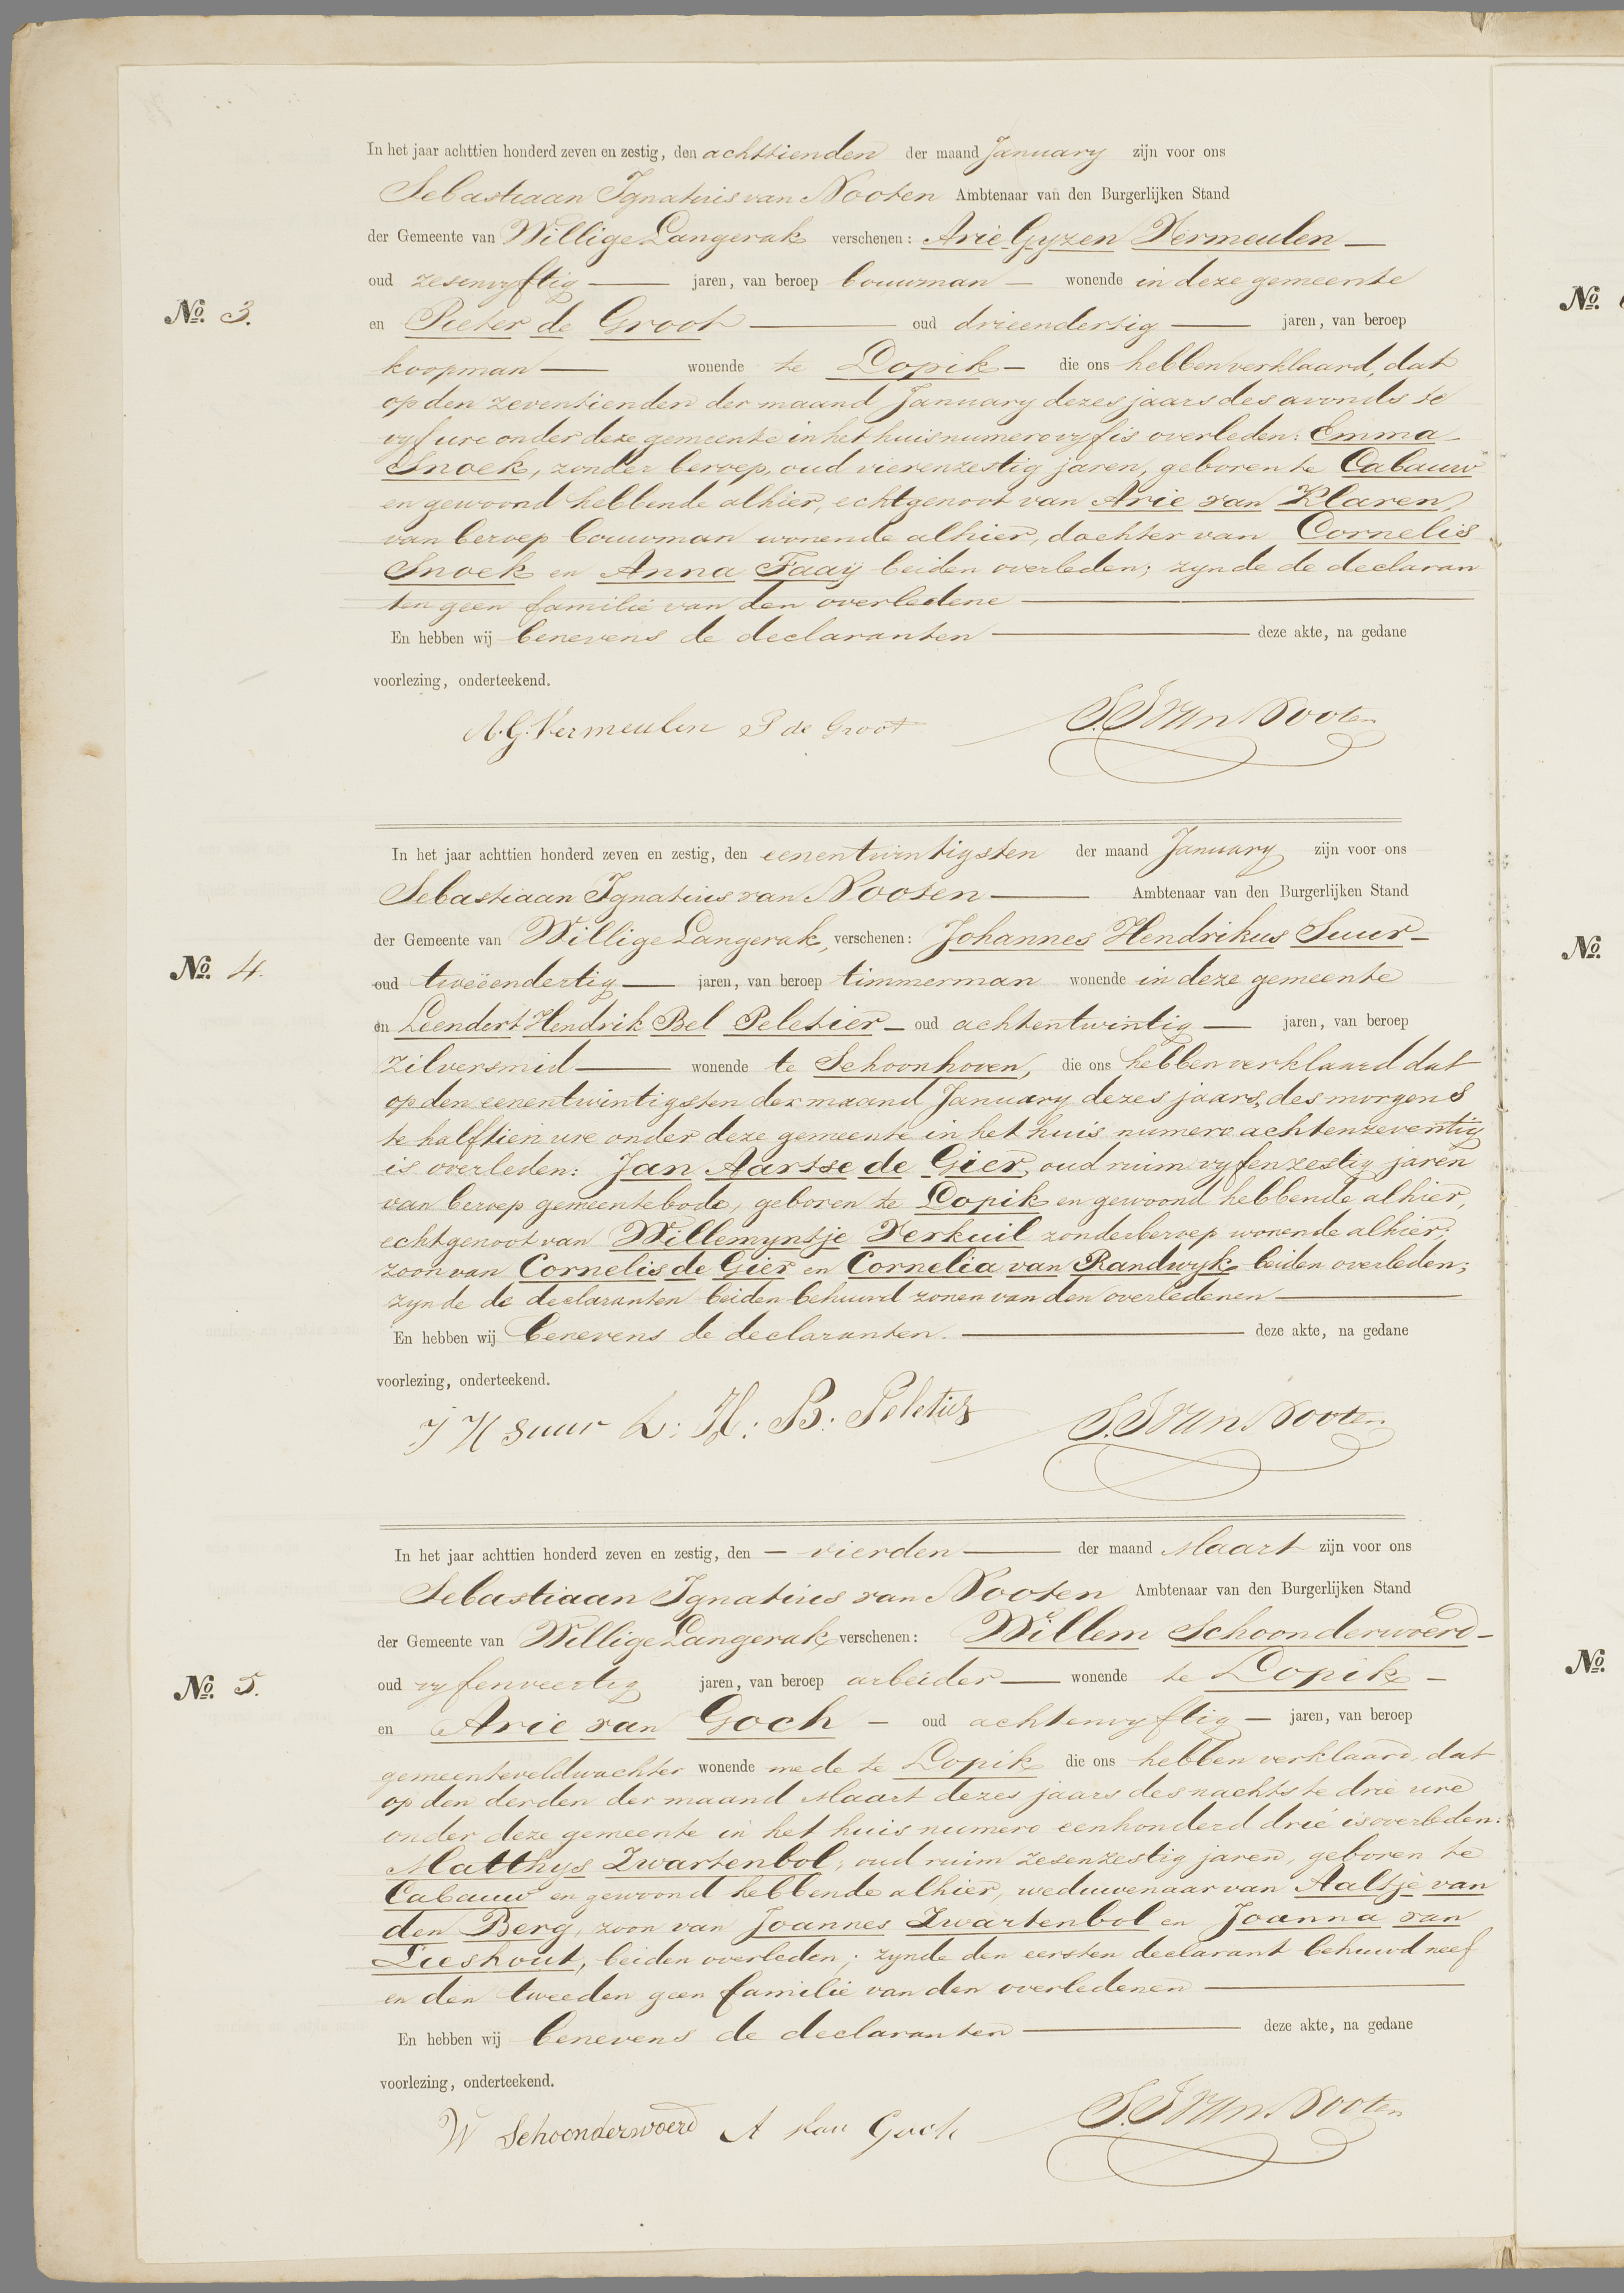 In het jaar achttien honderd zeven en zestig, den achttienden der maand January zijn voor ons
Sebastiaan Ignatius van Nooten Ambtenaar van den Burgerlijken Stand
der Gemeente van Willige Langerak verschenen: Arie Gyzen Vermeulen —
oud zesenvyftig — jaren, van beroep bouwman — wonende in deze gemeente
No. 3.
en Pieter de Groot — oud drieendertig — jaren, van beroep
koopman — wonende te Lopik — die ons hebben verklaard, dat
op den zeventienden der maand January dezes jaars des avonds te
vyf ure onder deze gemeente in het huis numero vyf is overleden: Emma
Snoek, zonder beroep, oud vierenzestig jaren, geboren te Cabauw
en gewoond hebbende alhier, echtgenoot van Arie van Klaren,
van beroep bouwman wonende alhier, dochter van Cornelis
Snoek en Anna Faaÿ beiden overleden; zynde de declaran
ten geen familie van den overledene —
En hebben wij benevens de declaranten — deze akte, na gedane
voorlezing, onderteekend.
A. G. Vermeulen P de Groot S.I. van Nooten
In het jaar achttien honderd zeven en zestig, den eenentwintigsten der maand January zijn voor ons
Sebastiaan Ignatius van Nooten — Ambtenaar van den Burgerlijken Stand
der Gemeente van Willige Langerak, verschenen: Johannes Hendrikus Suur —
No. 4.
oud tweëendertig — jaren, van beroep timmerman wonende in deze gemeente
en Leendert Hendrik Bel Peletier — oud achtentwintig — jaren, van beroep
zilversmid — wonende te Schoonhoven, die ons hebben verklaard dat
op den eenentwintigsten der maand January dezes jaars, des morgens
te half tien ure onder deze gemeente in het huis numero achtenzeventig
is overleden: Jan Aartse de Gier, oud ruim vyfenzestig jaren
van beroep gemeentebode, geboren te Lopik en gewoond hebbende alhier,
echtgenoot van Willemyntje Verkuil zonder beroep wonende alhier;
zoon van Cornelis de Gier en Cornelia van Randwyk beiden overleden;
zynde de declaranten beiden behuwd zonen van den overledenen —
En hebben wij benevens de declaranten. — deze akte, na gedane
voorlezing, onderteekend.
J H Suur L: H: B: Peletier S.I. van Nooten
In het jaar achttien honderd zeven en zestig, den — vierden — der maand Maart zijn voor ons
Sebastiaan Ignatius van Nooten Ambtenaar van den Burgerlijken Stand
der Gemeente van Willige Langerak, verschenen: Willem Schoonderwoerd —
No. 5.
oud vyfenveertig jaren, van beroep arbeider — wonende te Lopik —
en Arie van Goch — oud achtenvyftig — jaren, van beroep
gemeenteveldwachter wonende mede te Lopik die ons hebben verklaard, dat
op den derden der maand Maart dezes jaars des nachts te drie ure
onder deze gemeente in het huis numero eenhonderd drie is overleden:
Matthys Zwartenbol, oud ruim zesenzestig jaren, geboren te
Cabauw en gewoond hebbende alhier, weduwenaar van Aaltje van
den Berg, zoon van Joannes Zwartenbol en Joanna van
Lieshout, beiden overleden; zynde den eersten declarant behuwd neef
en den tweeden geen familie van den overledenen —
En hebben wij benevens de declaranten — deze akte, na gedane
voorlezing, onderteekend.
W Schoonderwoerd A van Goch S.I. van Nooten
No.
No.
No.